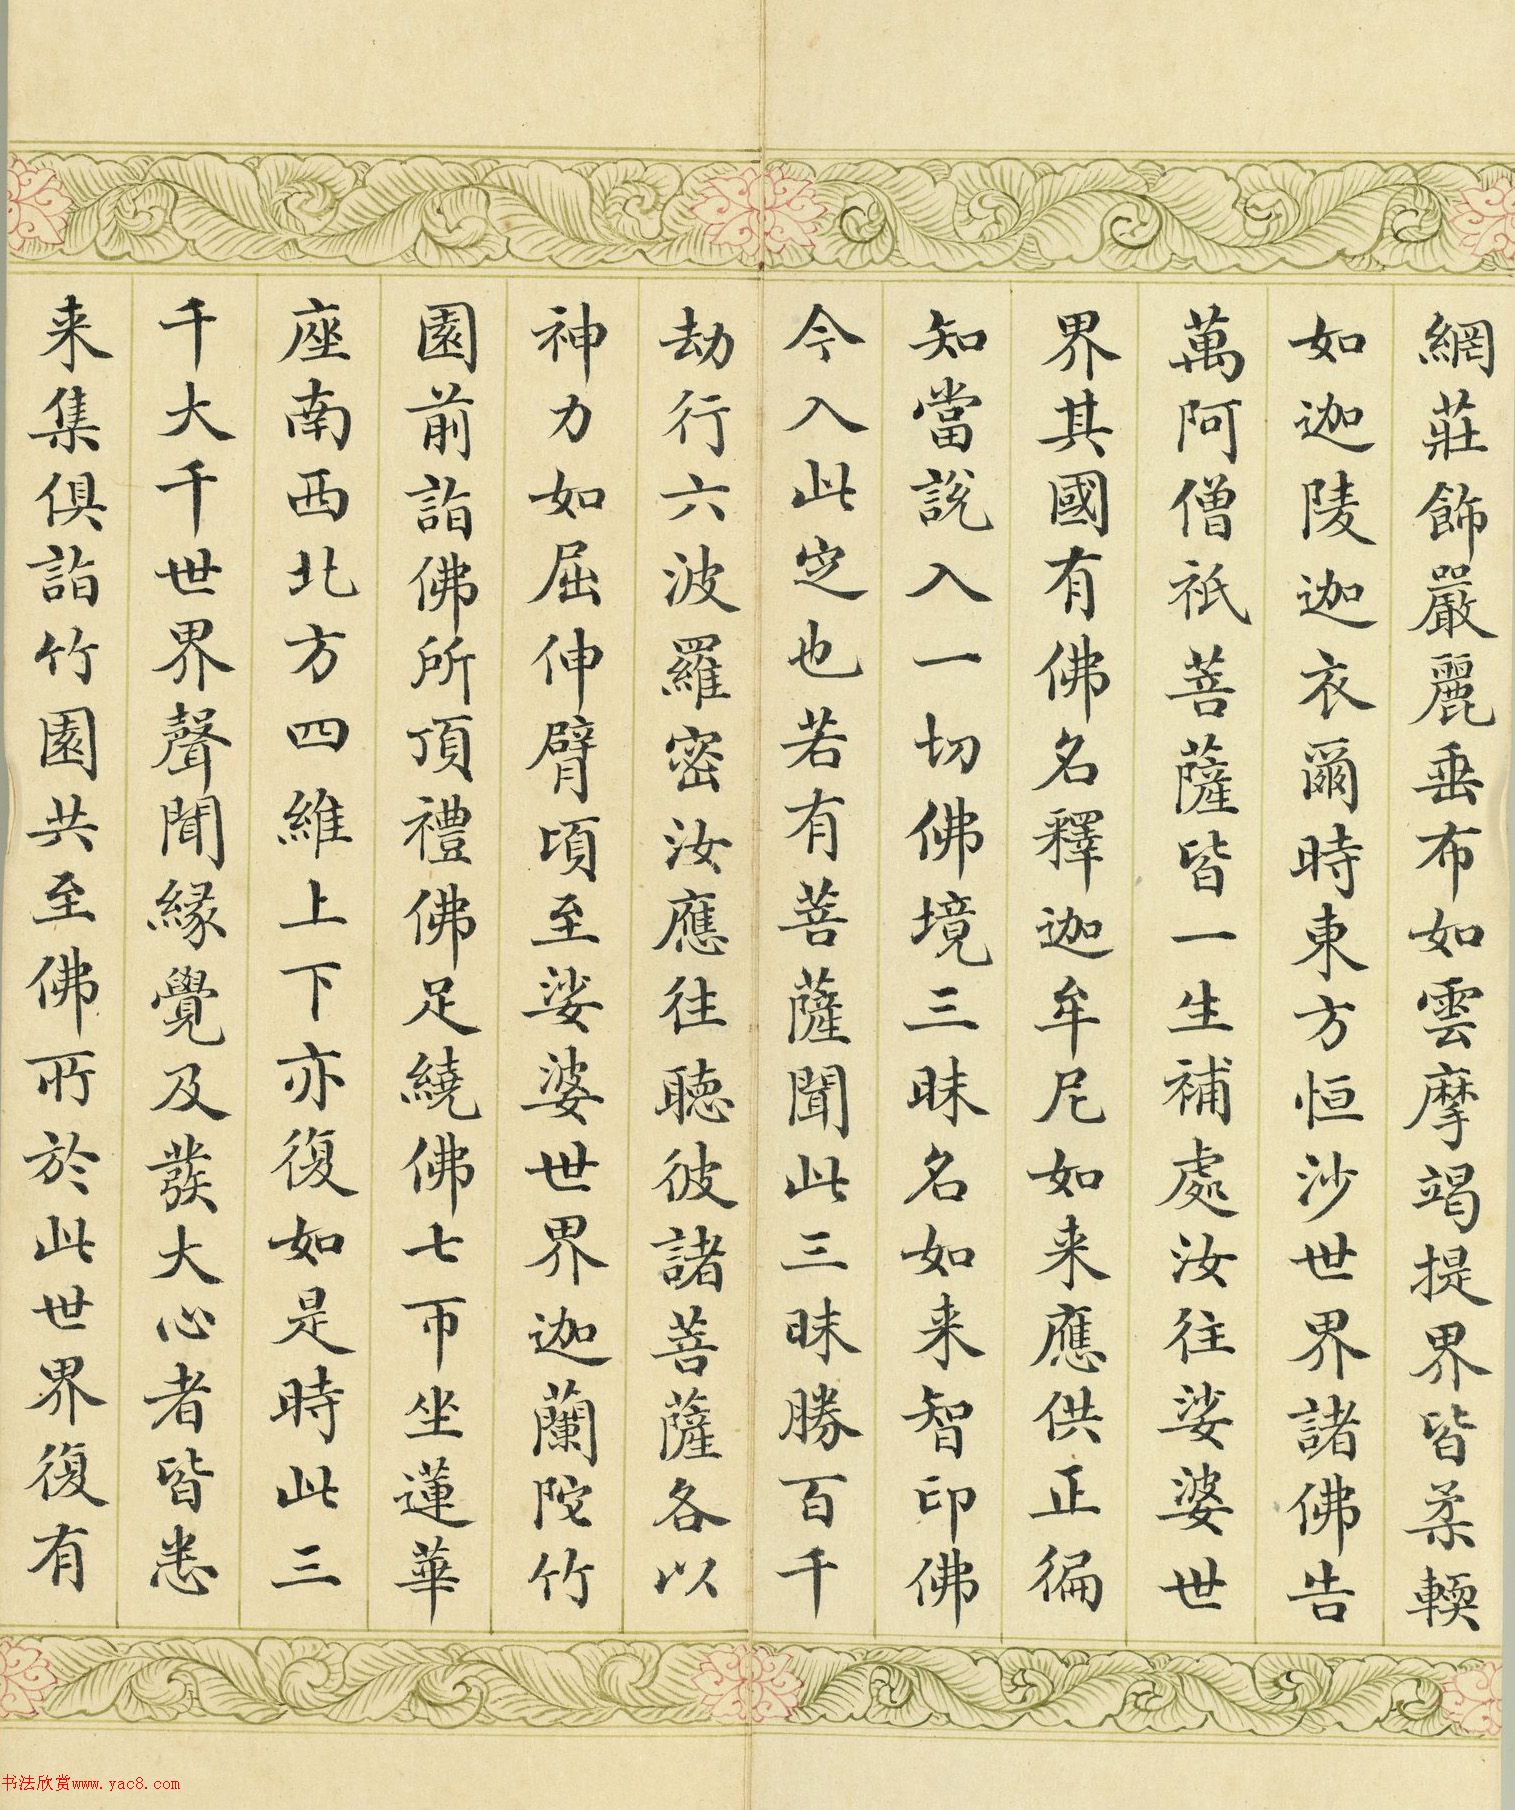 網莊飾嚴麗垂布如雲摩竭提界皆柔輭
如迦陵迦衣爾時東方恒沙世界諸佛告
萬阿僧祇菩薩皆一生補處汝往娑婆世
界其國有佛名釋迦牟尼如来應供正徧
知當說入一切佛境三昧名如来智印佛
今入此定也若有菩薩聞此三昧勝百千
劫行六波羅密汝應往聽彼諸菩薩各以
神力如屈伸臂頃至娑婆世界迦蘭陀竹
園前詣佛所頂禮佛足繞佛七帀坐蓮華
座南西北方四維上下亦復如是時此三
千大千世界聲聞緣覺及發大心者皆悉
来集俱詣竹園共至佛所於此世界復有
书法欣赏www.yac8.com